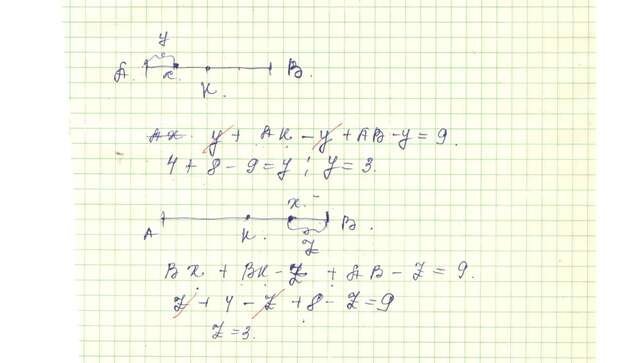 y
A. x. B.
K.
y + AK - y + AB - y = 9.
4 + 8 - 9 = y ; y = 3.
x.
A K. B.
z
Bx. + BK - z + AB - z = 9.
z + 4 - z + 8 - z = 9
z = 3.